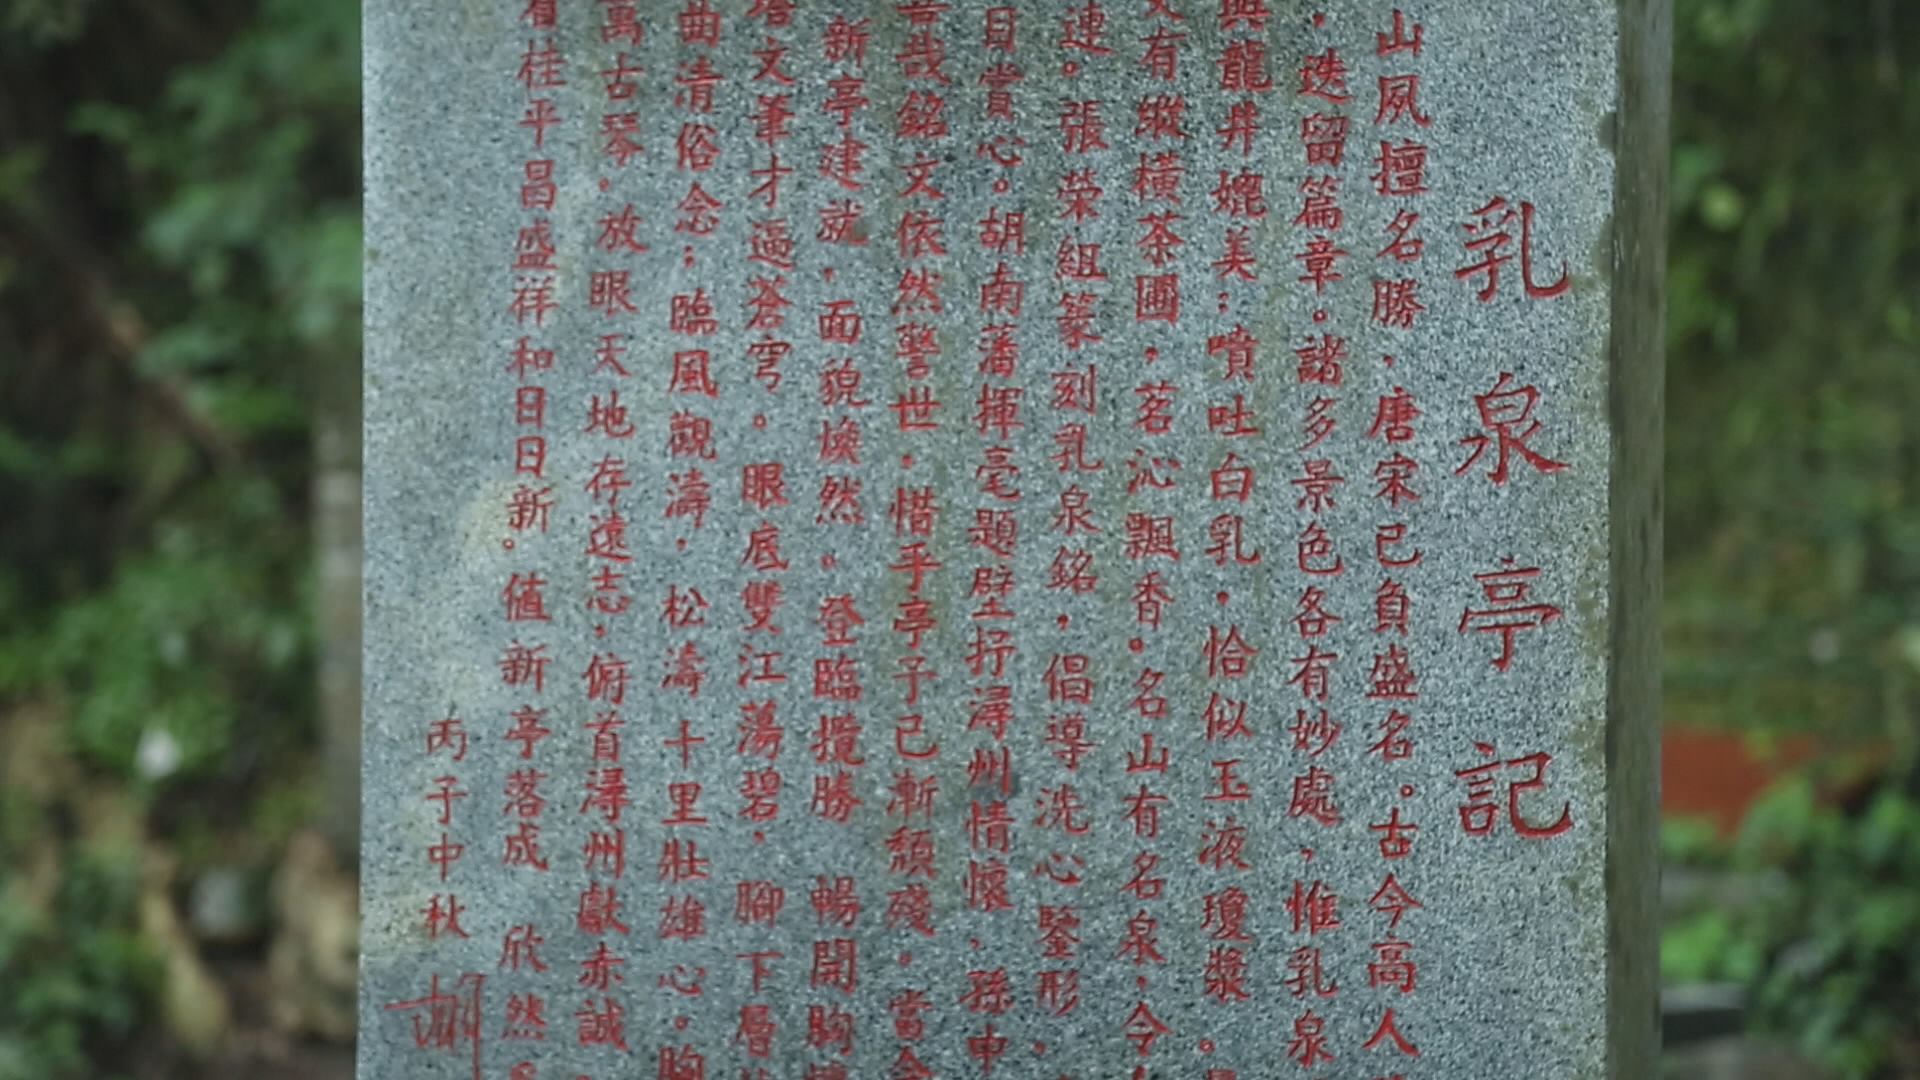 乳泉亭記
山夙擅名勝，唐宋已負盛名。古今高人
，迭留篇章。諸多景色各有妙處，惟乳泉
與龍井媲美；噴吐白乳，恰似玉液瓊漿。
又有縱橫茶圃，茗沁飄香。名山有名泉，今
連。張榮組篆刻乳泉銘，倡導洗心鑒形，
日賞心。胡南藩揮毫題壁抒潯州情懷，孫中
善哉銘文依然警世，惜乎亭子已漸頹殘，當今
新亭建就，面貌煥然。登臨攬勝 暢開胸
塔文筆才逼蒼穹。眼底雙江蕩碧，腳下層
曲清俗念；臨風觀濤，松濤十里壯雄心。胸
萬古琴，放眼天地存遠志，俯首潯州獻赤誠
看桂平昌盛祥和日日新。值新亭落成 欣然
丙子中秋 胡